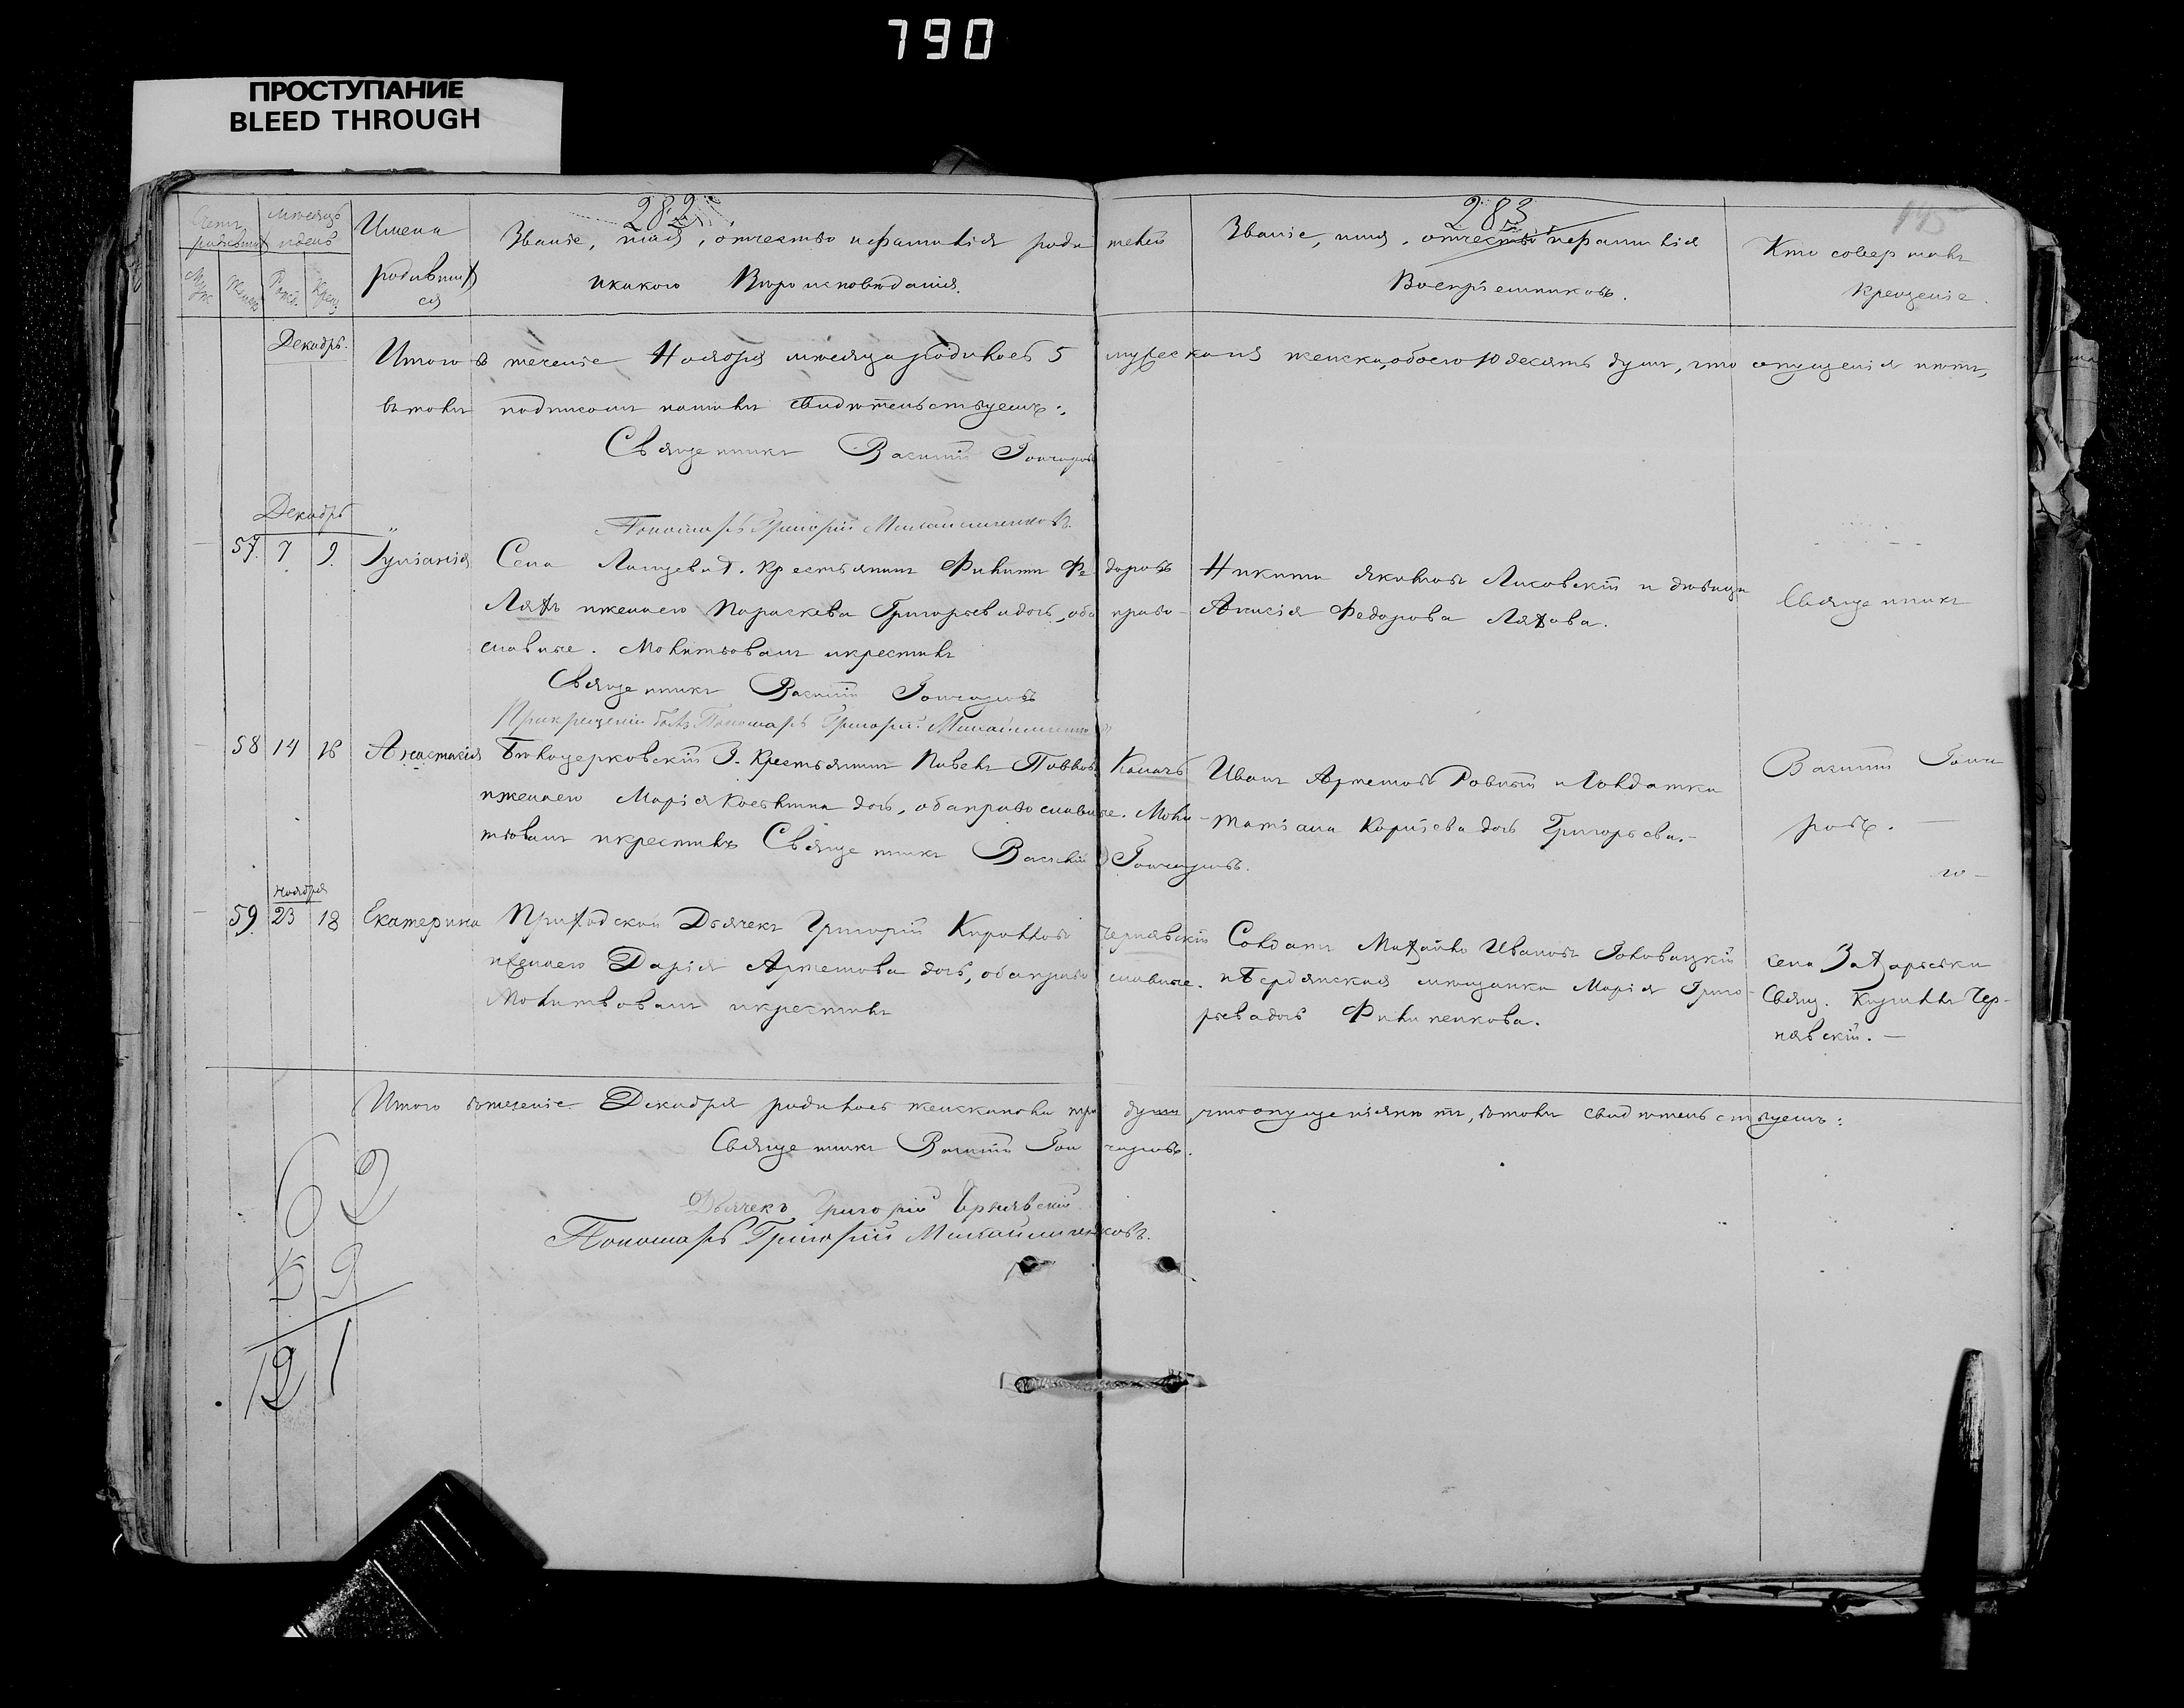 790
ПРОСТУПАНИЕ
BLEED THROUGH
282
283
145
Счетъ родившихся
мѣсяцъ и день
Имена родившихся
Званіе, имя, отчество и фамилія родителей
и какого Вѣроисповѣданія.
Званіе, имя, отчество и фамилія
Воспріемниковъ.
Кто совершалъ
крещеніе.
Муж. Женск. Рожд. Крещ.
Декабрь.
Итого въ теченіе Ноября мѣсяца родилось 5 мужеска и 5 женска, обоего 10 десять душъ, что опущенія нѣтъ,
въ томъ подписомъ нашимъ свидѣтельствуемъ:
Священникъ Василій Гончаровъ
Пономарь Григорій Михайличенковъ.
Декабрь
57. 7 9. Іуліанія
Села Лящевка. крестьянинъ Филиппъ Федоровъ
Ляхъ и жена его Параскева Григорьева дочь, оба право-
славные. Молитвовалъ и крестилъ
Священникъ Василій Гончаровъ
При крещеніи былъ Пономарь Григорій Михайличенковъ
Никита Яковлевъ Лисовскій и дѣвица
Анисія Федорова Ляхова.
Священникъ
58 14 16 Анастасія
Бѣлоцерковскій Г. Крестьянинъ Павелъ Павловъ Калачъ
и жена его Марія дочь, оба православные. Моли-
твовалъ и крестилъ Священникъ Василій Гончаровъ.
Иванъ Артемовъ Ровный и Солдатка
Татіана дочь Григорьева.
Василій Гонча-
ровъ.
Ноября
59. 23 18 Екатерина
Приходской Дьячекъ Григорій Кирилловъ Чернявскій
и жена его Дарія Артемова дочь, оба православные.
Молитвовалъ и крестилъ
Солдатъ Михайло Ивановъ Головацкій
и Бердянская мѣщанка Марія Григо-
рьева дочь Филипенкова.
села Захарьевки
Свящ. Кириллъ Чер-
нявскій.
Итого въ теченіе Декабря родилось женска пола три души, что опущенія нѣтъ, въ томъ свидѣтельствуемъ:
Священникъ Василій Гончаровъ.
Дьячекъ Григорій Чернявскій
Пономарь Григорій Михайличенковъ.
62
59
121